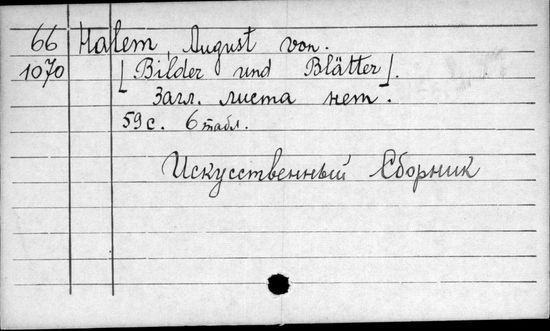 66 Halem, August von.
1070 [Bilder und Blätter].
Загл. листа нет.
59 с. 6 табл.
Искусственный Сборник